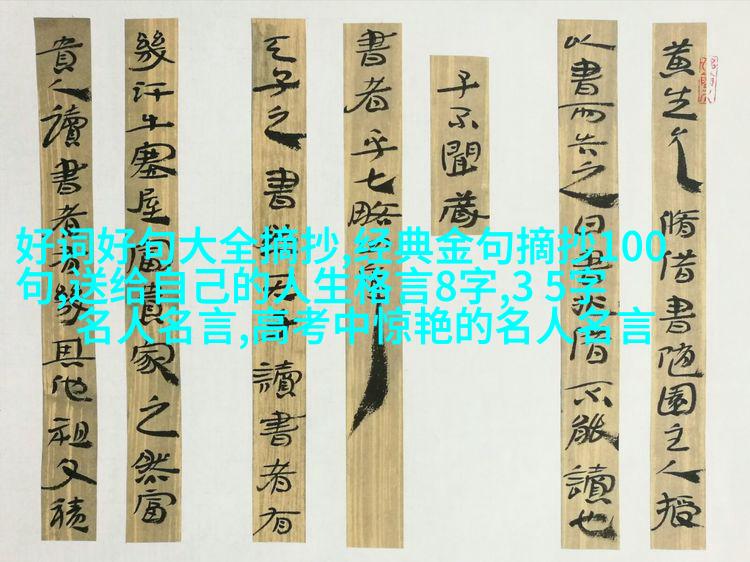 黄生允脩借書隨園主人授
以書而告之曰書非借不能讀也
子不聞藏
書者乎七略
天子之書然天子讀書者有
幾汗牛塞屋富貴家之然富
貴人讀書者有幾其他祖父積
好词好句大全摘抄,经典金句摘抄100
句,送给自己的人生格言8字,3 5字
名人名言,高考中惊艳的名人名言